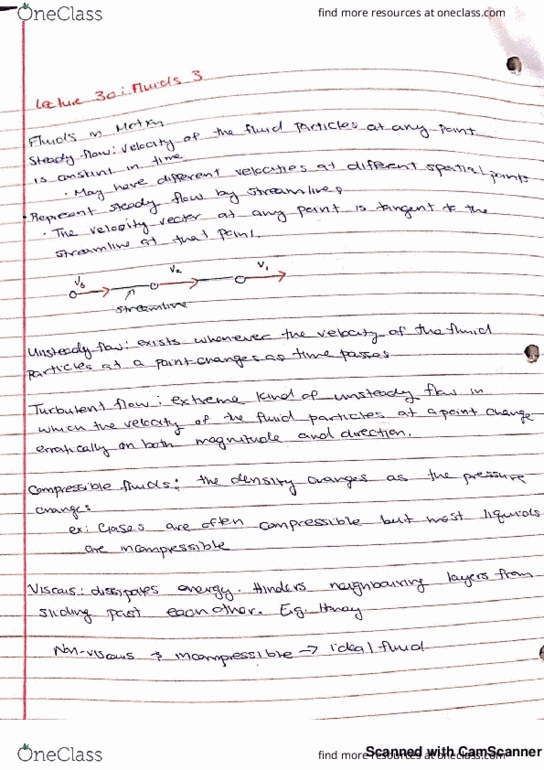 OneClass
find more resources at oneclass.com
Lecture 30: Fluids 3
Fluids in Motion
Steady flow: velocity of the fluid particles at any point
is constant in time
· May have different velocities at different spatial points
· Represent steady flow by streamlines
· The velocity vector at any point is tangent to the
streamline at that point.
V₂
V₁
streamline
Unsteady flow: exists whenever the velocity of the fluid
particles at a point changes as time passes
Turbulent flow: extreme kind of unsteady flow in
which the velocity of the fluid particles at a point change
erratically on both magnitude and direction.
Compressible fluids: the density changes as the pressure
changes
ex: Gases are often compressible but most liquids
are incompressible
Viscous: dissipates energy. Hinders neighbouring layers from
sliding past each other. E.g. Honey
Non-viscous + incompressible → ideal fluid
OneClass
find more resources at oneclass.com
Scanned with CamScanner